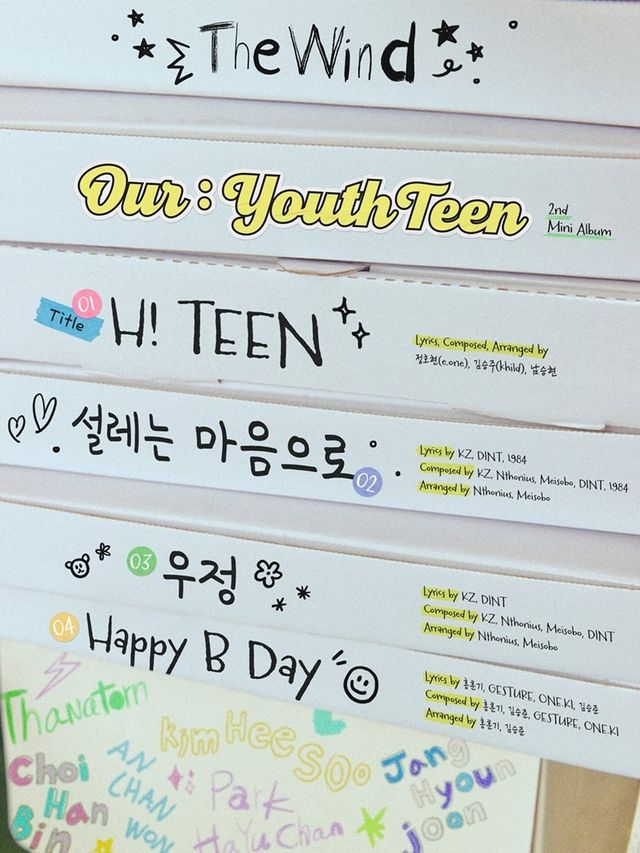 The Wind
Our : YouthTeen
2nd
Mini Album
01
Title
H! TEEN
Lyrics, Composed, Arranged by
정호현(e.one), 김승주(Khild), 남승현
설레는 마음으로
02
Lyrics by KZ, DINT, 1984
Composed by KZ, Nthonius, Meisobo, DINT, 1984
Arranged by Nthonius, Meisobo
03
우정
Lyrics by KZ, DINT
Composed by KZ, Nthonius, Meisobo, DINT
Arranged by Nthonius, Meisobo
04
Happy B Day
Lyrics by 홍훈기, GESTURE, ONE.KI, 김승준
Composed by 홍훈기, 김승준, GESTURE, ONE.KI
Arranged by 홍훈기, 김승준
Thanatorn
Kim Hee Soo
Jang Hyoun joon
Choi Han Bin
AN CHAN WON
Park HaYuChan